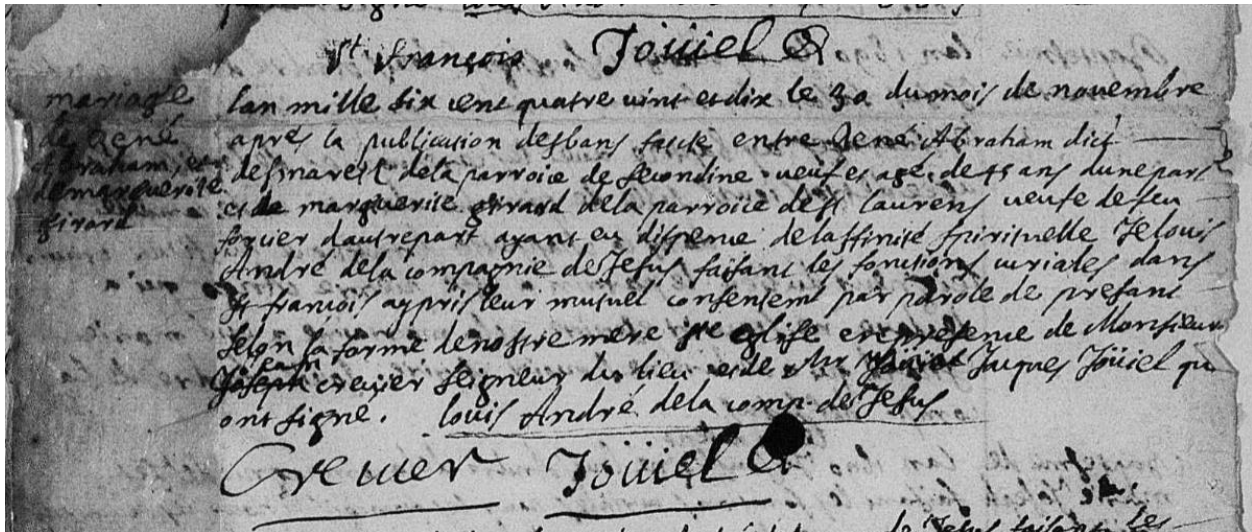 St françois Joüiel
mariage
de René
Abraham, et
de marguerite
girard
lan mille six cent quatre vint et dix le 30 du mois de novembre
aprés la publication des bans faicte entre René Abraham dict
desmarest dela parroice de secondine veuf et agé de 45 ans dune part
et de marguerite girard dela parroice de st laurens veufe de feu
foquier dautre part ayant eu dispense de laffinité spirituelle Je louis
André dela compagnie de Jesus faisant les fonctions curiales dans
st francois ay pris leur mutuel consentem par parole de presant
selon la forme de nostre mere ste eglise en presence de Monsieur
Jean crevier seigneur du lieu et de Mr Jacques Joüiel qui
ont signé. louis André dela comp. de Jesus
Creuier Joüiel
de Jesus faisant les